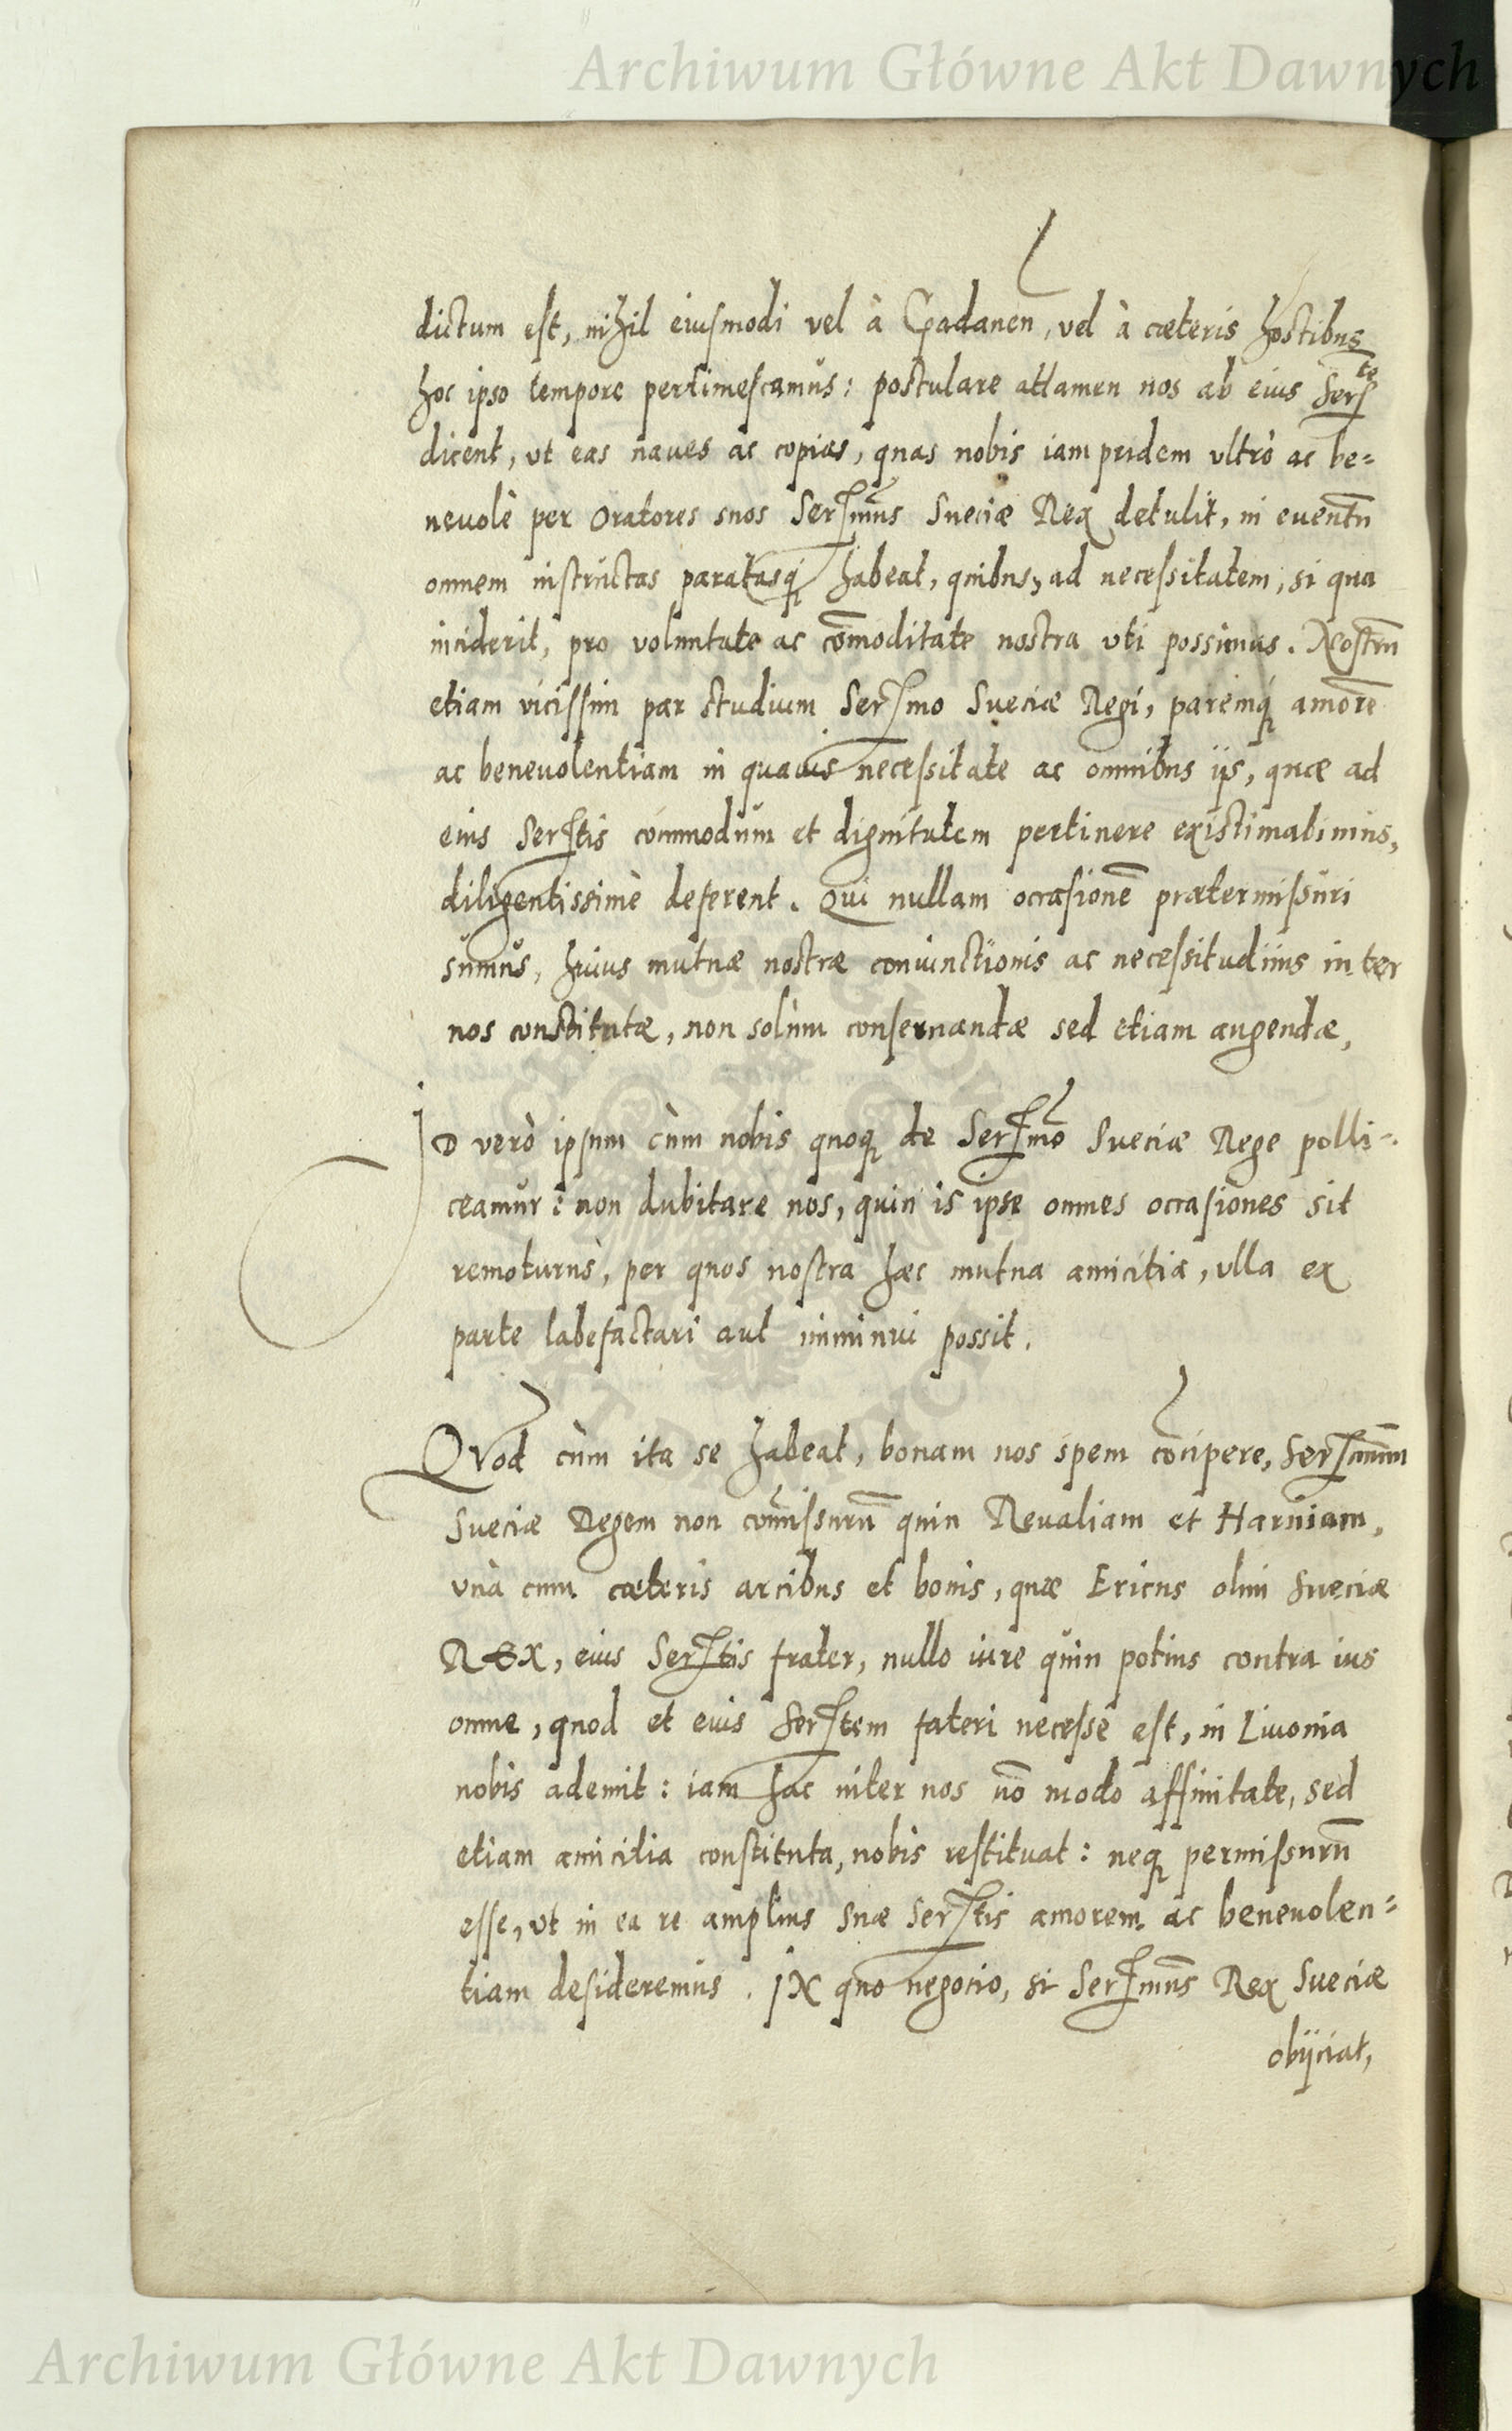 Archiwum Główne Akt Dawnych
dictum est, nihil eiusmodi vel à Gadanen, vel à cæteris hostibus
hoc ipso tempore pertimescamus: postulare attamen nos ab eius Serte
dicent, ut eas naues ac copias, quas nobis iampridem vltrò ac be=
neuolè per Oratores suos Sermus Sueciæ Rex detulit, in euentũ
omnem instructas paratasq́ habeat, quibus, ad necessitatem, si qua
inciderit, pro voluntate ac cõmoditate nostra vti possimus. Nostrũ
etiam vicissim par studium Sermo Sueciæ Regi, paremq́ amorẽ
ac beneuolentiam in quauis necessitate ac omnibus ijs, quæ ad
eius Sertis commodum et dignitatem pertinere existimabimus,
diligentissimè deferent. Qui nullam occasionẽ prætermissuri
sumus, huius mutuæ nostræ coniunctionis ac necessitudinis inter
nos constitutæ, non solùm conseruandæ sed etiam augendæ,
JD verò ipsum cùm nobis quoq de Sermo Sueciæ Rege polli=
ceamur: non dubitare nos, quin is ipse omnes occasiones sit
remoturus, per quos nostra hæc mutua amicitia, vlla ex
parte labefactari aut imminui possit.
QVod cùm ita se habeat, bonam nos spem cõcipere, Sermum
Sueciæ Regem non cõmissurũ quin Reualiam et Harniam,
vnà cum cæteris arcibus et bonis, quæ Ericus olim Sueciæ
REX, eius Sertis frater, nullo iure quin potius contra ius
omne, quod et eius Sertem fateri necesse est, in Liuonia
nobis ademit: iam hac inter nos nõ modo affinitate, sed
etiam amicitia constituta, nobis restituat: neq permissurũ
esse, vt in ea re amplius suæ Sertis amorem ac beneuolen=
tiam desideremus. JN quo negocio, si Sermus Rex Sueciæ
obijciat,
Archiwum Główne Akt Dawnych